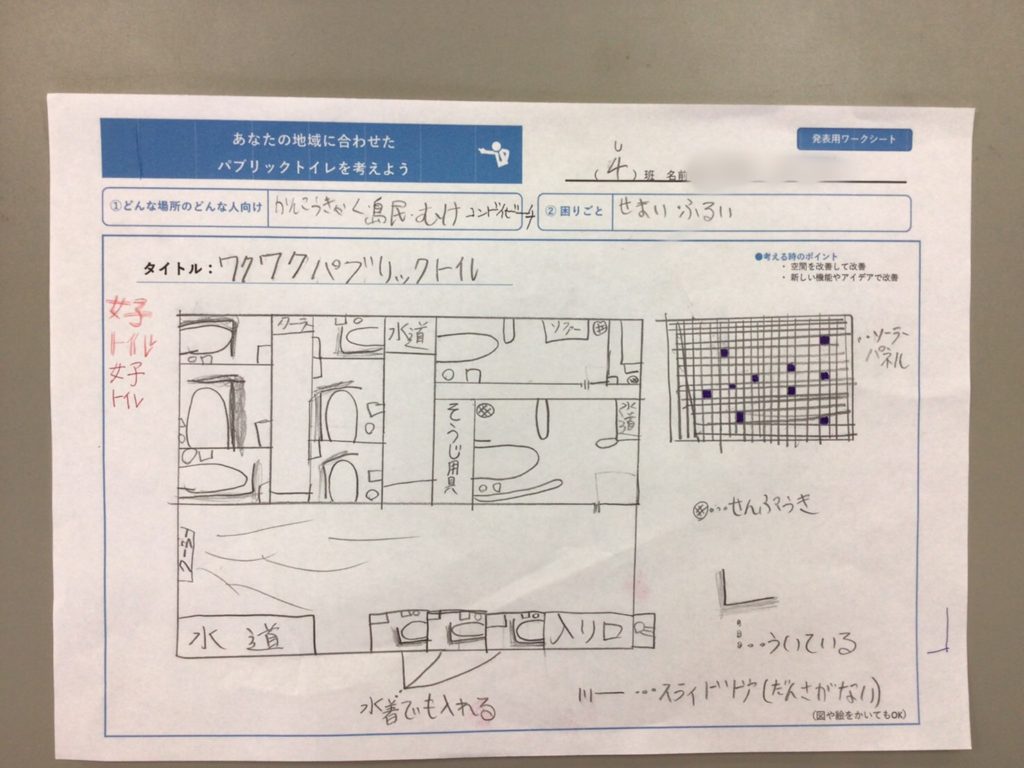 あなたの地域に合わせた
パブリックトイレを考えよう
発表用ワークシート
(4)班 名前
①どんな場所のどんな人向け
かんこうきゃく島民・むけ コンドイビーチ
②困りごと
せまい ふるい
タイトル:ワクワクパブリックトイレ
●考える時のポイント
・空間を改善して改善
・新しい機能やアイデアで改善
女子
トイレ
女子
トイレ
クーラー
水道
ソファー
そうじ用具
水道
…ソーラー
パネル
…せんぷうき
クーラー
水道
入り口
…ういている
水着でも入れる
…スライドドア(だんさがない)
(図や絵をかいてもOK)